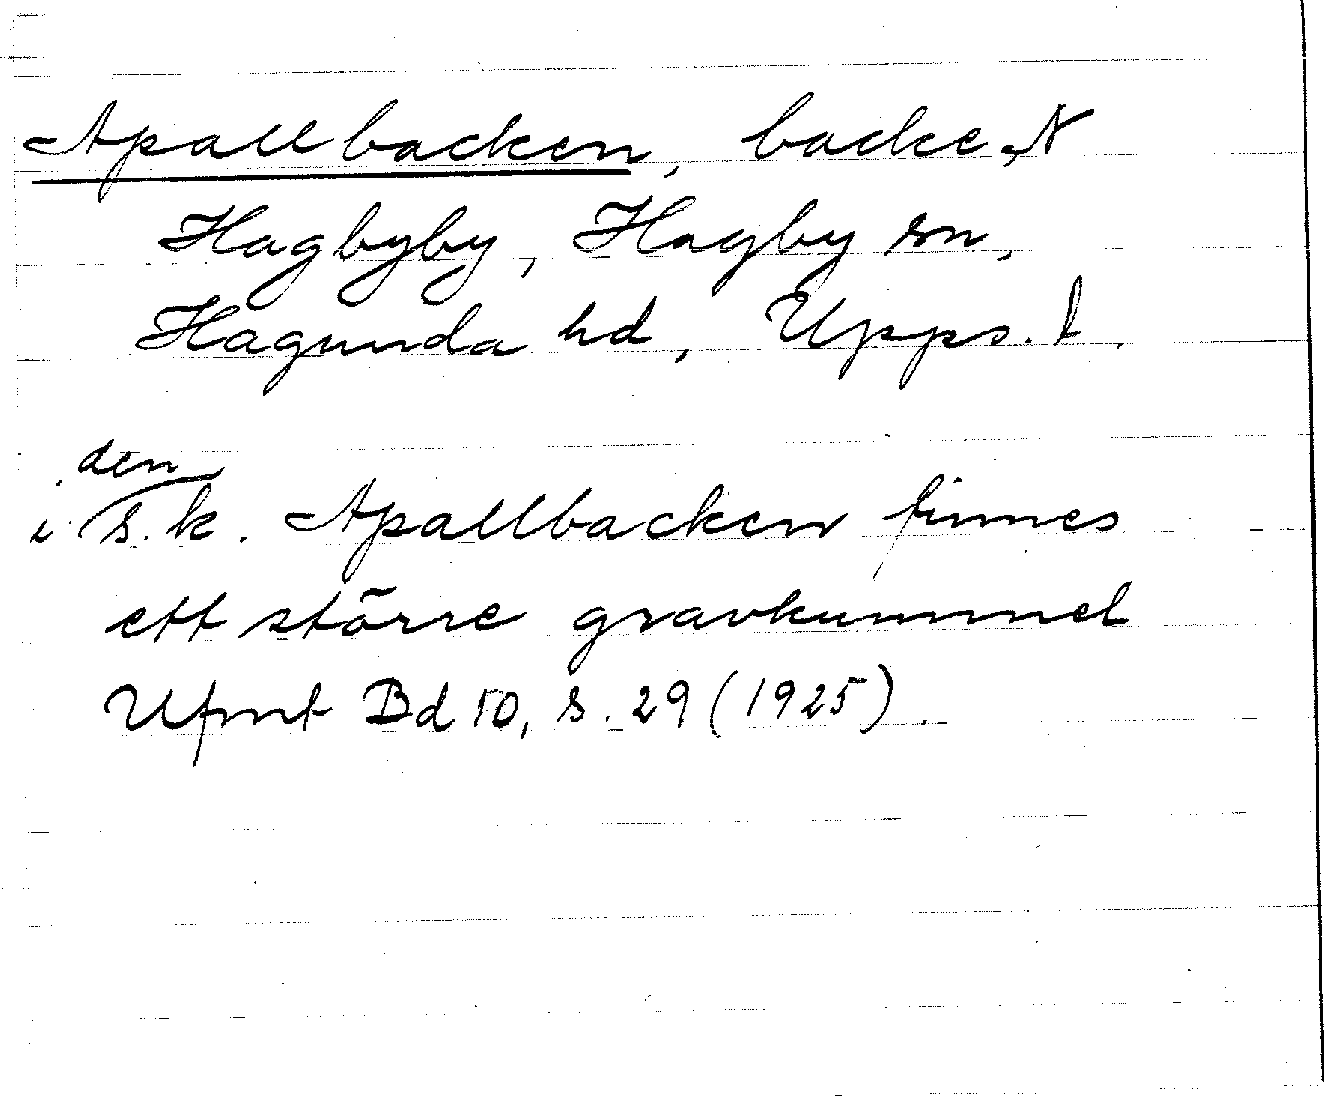 Apallbacken, backe N
Hagbyby, Hagby sn,
Hagunda hd, Upps. l.
i den s.k. Apallbacken finnes
ett större gravkummel
Ufmt Bd 10, s. 29 (1925).